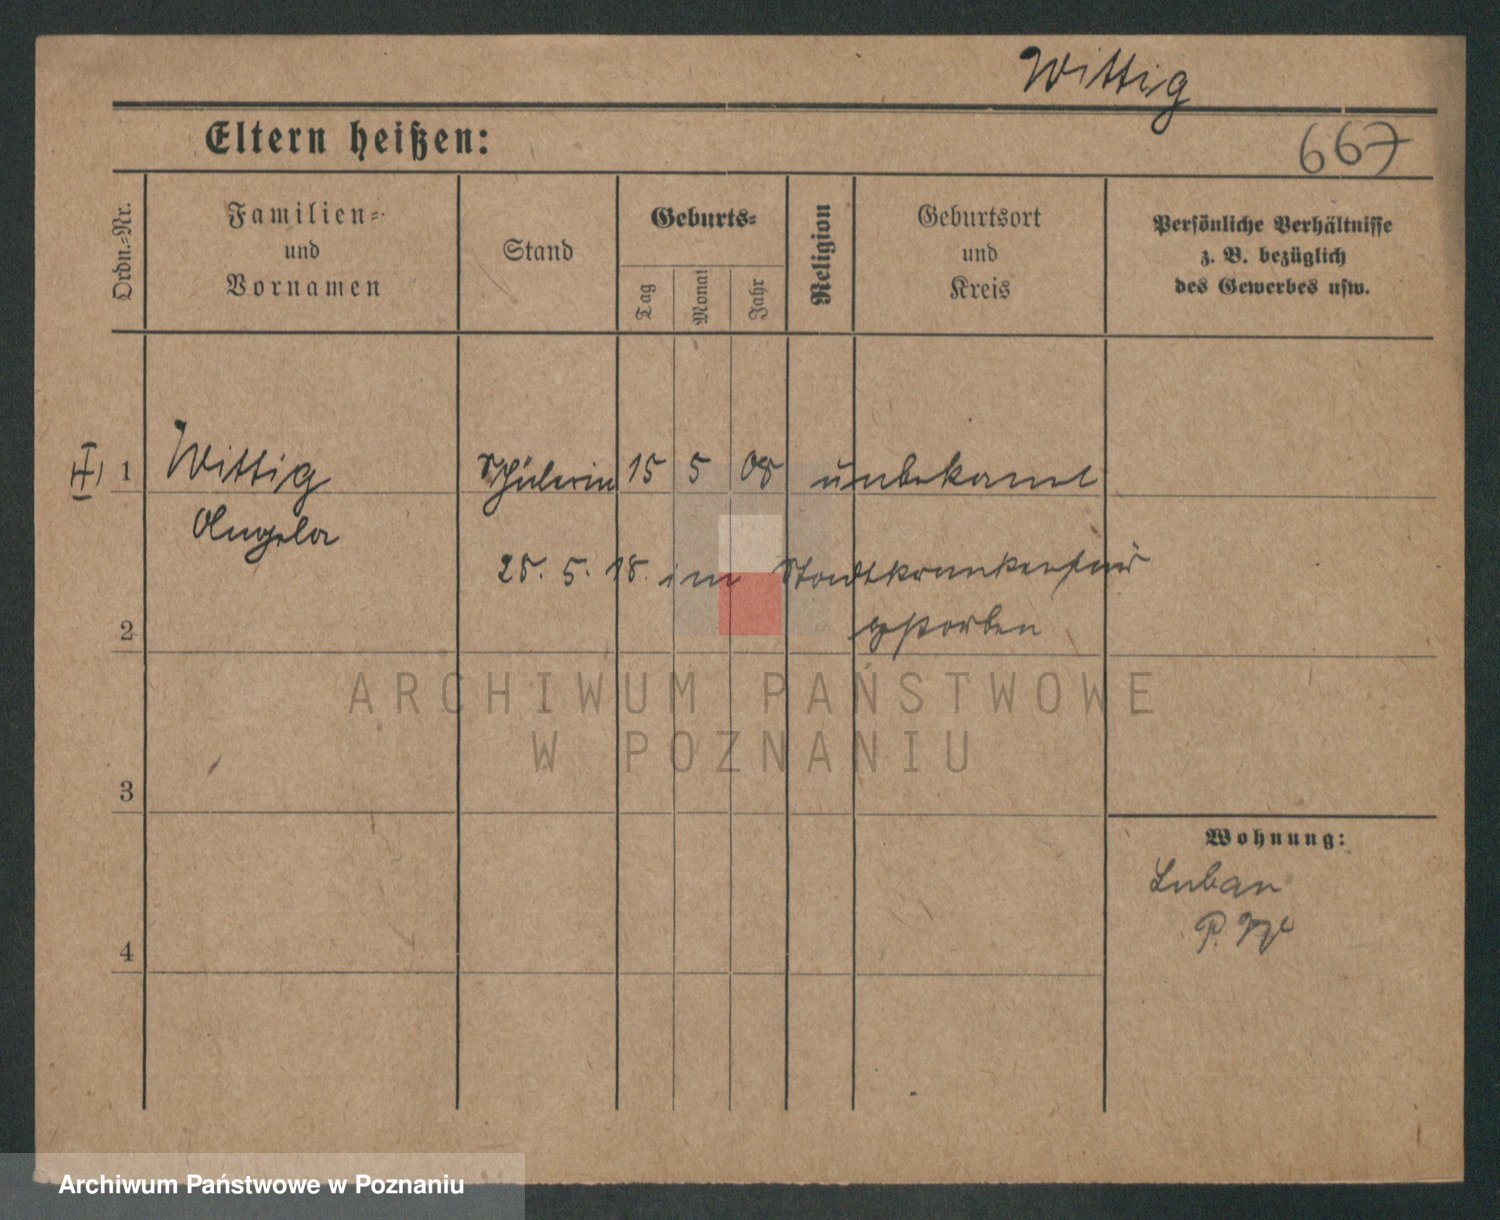 Wittig
Eltern heißen:
667
Ordn.-Nr.
Familien-
und
Vornamen
Stand
Geburts-
Tag
Monat
Jahr
Religion
Geburtsort
und
Kreis
Persönliche Verhältnisse
z. B. bezüglich
des Gewerbes usw.
1 Wittig Schülerin 15 5 08 unbekannt
Angela
25. 5. 18. im Stadtkrankenhaus
gestorben
2
ARCHIWUM PAŃSTWOWE
W POZNANIU
3
Wohnung:
Luban
4
Archiwum Państwowe w Poznaniu